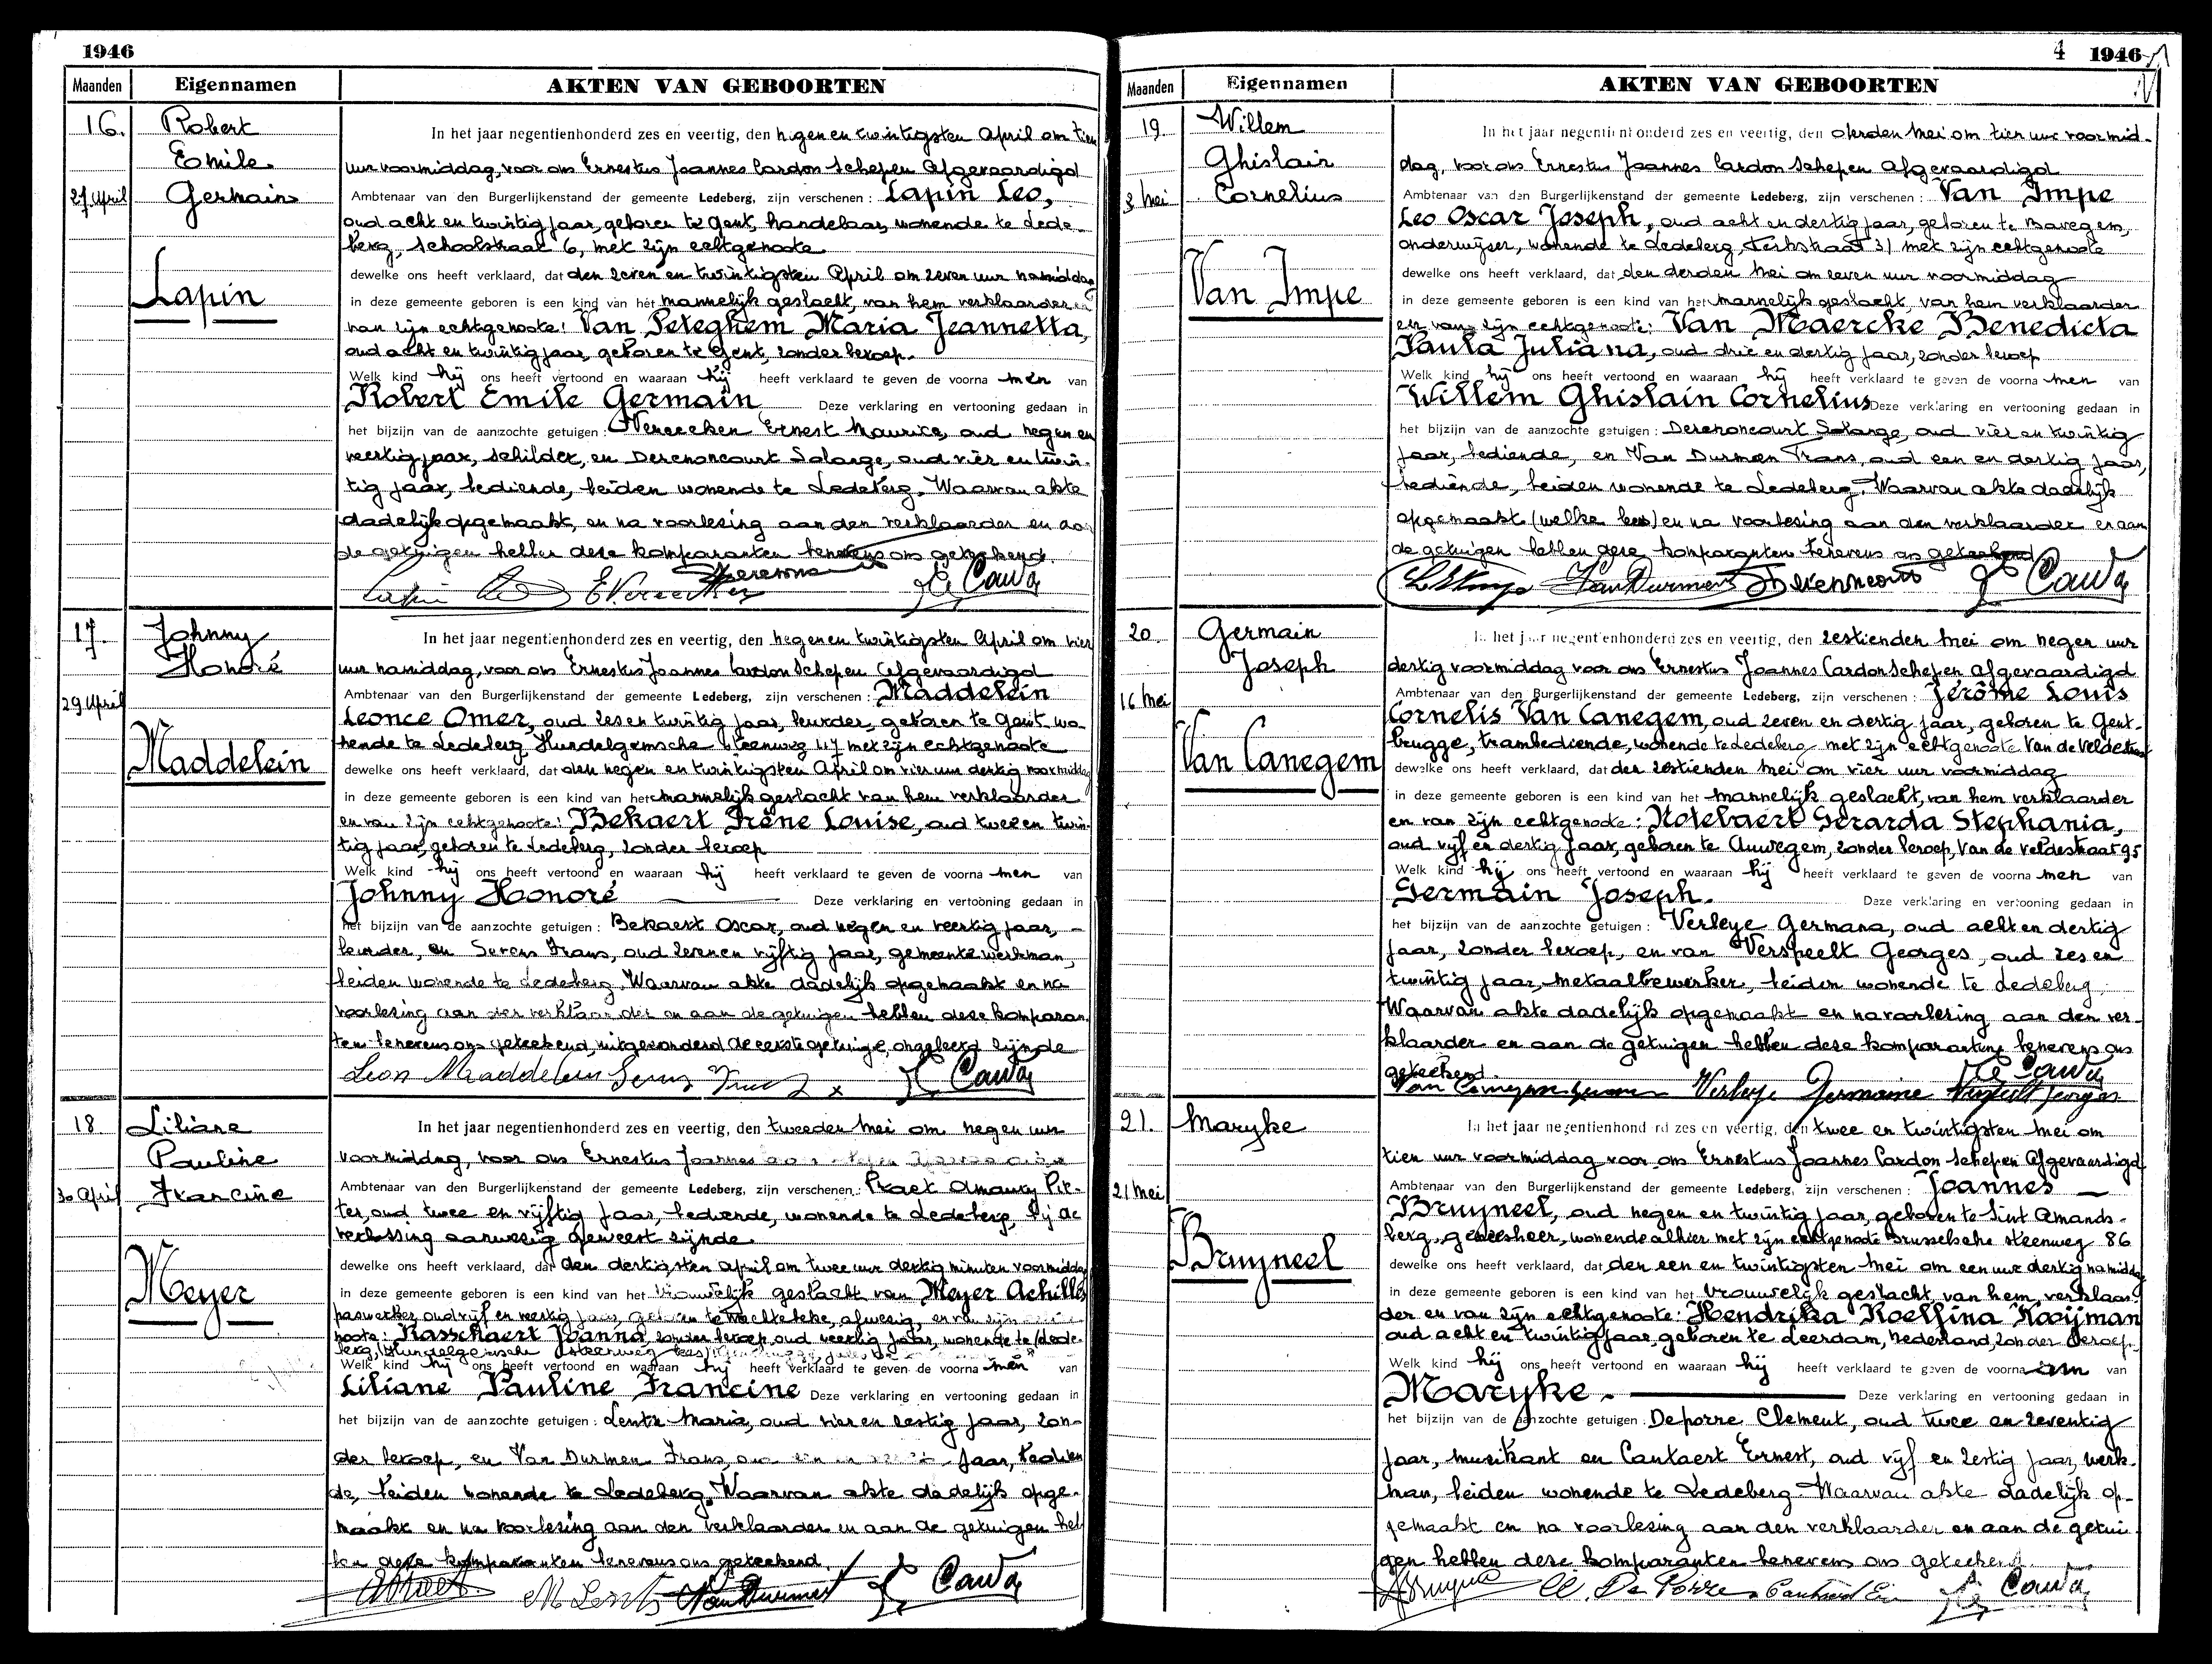 1946
Maanden Eigennamen AKTEN VAN GEBOORTEN
16. Robert
Emile
27 April Germain
Lapin
In het jaar negentienhonderd zes en veertig, den negen en twintigsten April om tien
uur voormiddag, voor ons Ernestus Joannes Cardon Schepen Afgevaardigd
Ambtenaar van den Burgerlijkenstand der gemeente Ledeberg, zijn verschenen: Lapin Leo,
oud acht en twintig jaar, geboren te Gent, handelaar, wonende te Lede-
berg, Schoolstraat 6, met zijn echtgenoote
dewelke ons heeft verklaard, dat den zeven en twintigsten April om zeven uur namiddag
in deze gemeente geboren is een kind van het mannelijk geslacht, van hem verklaarder en
van zijn echtgenoote: Van Peteghem Maria Jeannetta,
oud acht en twintig jaar, geboren te Gent, zonder beroep.
Welk kind hij ons heeft vertoond en waaraan hij heeft verklaard te geven de voorna men van
Robert Emile Germain Deze verklaring en vertooning gedaan in
het bijzijn van de aanzochte getuigen: Vereecken Ernest Maurice, oud negen en
veertig jaar, schilder, en Derenoncourt Solange, oud vier en twin-
tig jaar, bediende, beiden wonende te Ledeberg. Waarvan akte
dadelijk opgemaakt, en na voorlezing aan den verklaarder en aan
de getuigen hebben deze komparanten benevens ons geteekend.
17. Johnny
Honoré
29 April
Maddelein
In het jaar negentienhonderd zes en veertig, den negen en twintigsten April om vier
uur namiddag, voor ons Ernestus Joannes Cardon Schepen Afgevaardigd
Ambtenaar van den Burgerlijkenstand der gemeente Ledeberg, zijn verschenen: Maddelein
Leonce Omer, oud zes en twintig jaar, leurder, geboren te Gent, wo-
nende te Ledeberg Hundelgemsche steenweg 117 met zijn echtgenoote
dewelke ons heeft verklaard, dat den negen en twintigsten April om vier uur dertig voormiddag
in deze gemeente geboren is een kind van het mannelijk geslacht van hem verklaarder
en van zijn echtgenoote: Bekaert Irène Louise, oud twee en twin-
tig jaar, geboren te Ledeberg, zonder beroep
Welk kind hij ons heeft vertoond en waaraan hij heeft verklaard te geven de voorna men van
Johnny Honoré Deze verklaring en vertooning gedaan in
het bijzijn van de aanzochte getuigen: Bekaert Oscar, oud negen en veertig jaar,
leurder, en Serens Frans, oud zeven en vijftig jaar, gemeentewerkman,
beiden wonende te Ledeberg. Waarvan akte dadelijk opgemaakt en na
voorlezing aan den verklaarder en aan de getuigen hebben deze komparan
ten benevens ons geteekend, uitgezonderd de eerste getuige, ongeleerd zijnde
Leon Maddelein x
18 Liliane
Pauline
30 April Francine
Meyer
In het jaar negentienhonderd zes en veertig, den tweeden Mei om negen uur
voormiddag, voor ons Ernestus Joannes
Ambtenaar van den Burgerlijkenstand der gemeente Ledeberg, zijn verschenen: Praet Amaury Pie-
ter, oud twee en vijftig jaar, bediende, wonende te Ledeberg, bij de
verlossing aanwezig geweest zijnde.
dewelke ons heeft verklaard, dat den dertigsten April om twee uur dertig minuten voormiddag
in deze gemeente geboren is een kind van het vrouwelijk geslacht van Meyer Achilles
paswerker, oud vijf en veertig jaar, geboren te Wachtebeke, afwezig, en van zijn
noote: Rasschaert Joanna, zonder beroep, oud veertig jaar, wonende te Lede-
berg, Hundelgemsche steenweg
Welk kind hij ons heeft vertoond en waaraan hij heeft verklaard te geven de voorna men van
Liliane Pauline Francine Deze verklaring en vertooning gedaan in
het bijzijn van de aanzochte getuigen: Lentz Maria, oud vier en zestig jaar, zon-
der beroep, en Van Durmen Frans, jaar, bedien
de, beiden wonende te Ledeberg. Waarvan akte dadelijk opge-
maakt en na voorlezing aan den verklaarder en aan de getuigen heb
ben deze komparanten benevens ons geteekend.
M Lentz Van Durmen
4 1946
Maanden Eigennamen AKTEN VAN GEBOORTEN
19. Willem
Ghislain
3 Mei Cornelius
Van Impe
In het jaar negentienhonderd zes en veertig, den derden Mei om tien uur voormid-
dag, voor ons Ernestus Joannes Cardon Schepen Afgevaardigd
Ambtenaar van den Burgerlijkenstand der gemeente Ledeberg, zijn verschenen: Van Impe
Leo Oscar Joseph, oud acht en dertig jaar, geboren te Bavegem,
onderwijzer, wonende te Ledeberg, Kerkstraat 31 met zijn echtgenoote
dewelke ons heeft verklaard, dat den derden Mei om zeven uur voormiddag
in deze gemeente geboren is een kind van het mannelijk geslacht, van hem verklaarder
en van zijn echtgenoote: Van Maercke Benedicta
Paula Juliana, oud drie en dertig jaar, zonder beroep
Welk kind hij ons heeft vertoond en waaraan hij heeft verklaard te geven de voorna men van
Willem Ghislain Cornelius Deze verklaring en vertooning gedaan in
het bijzijn van de aanzochte getuigen: Derenoncourt Solange, oud vier en twintig
jaar, bediende, en Van Durmen Frans, oud een en dertig jaar,
bediende, beiden wonende te Ledeberg. Waarvan akte dadelijk
opgemaakt (welke lees) en na voorlezing aan den verklaarder en aan
de getuigen hebben deze komparanten benevens ons geteekend
Van Durmen Derenoncourt
20. Germain
Joseph
16 Mei
Van Canegem
In het jaar negentienhonderd zes en veertig, den zestienden Mei om negen uur
dertig voormiddag voor ons Ernestus Joannes Cardon Schepen Afgevaardigd
Ambtenaar van den Burgerlijkenstand der gemeente Ledeberg, zijn verschenen: Jérôme Louis
Cornelis Van Canegem, oud zeven en dertig jaar, geboren te Gent-
brugge, trambediende, wonende te Ledeberg met zijn echtgenoote Van de Veldestraat
dewelke ons heeft verklaard, dat den zestienden Mei om vier uur voormiddag
in deze gemeente geboren is een kind van het mannelijk geslacht, van hem verklaarder
en van zijn echtgenoote: Notebaert Gerarda Stephania,
oud vijf en dertig jaar, geboren te Auwegem, zonder beroep, Van de Veldestraat 95
Welk kind hij ons heeft vertoond en waaraan hij heeft verklaard te geven de voorna men van
Germain Joseph. Deze verklaring en vertooning gedaan in
het bijzijn van de aanzochte getuigen: Verleye Germana, oud acht en dertig
jaar, zonder beroep, en van Verspeelt Georges, oud zes en
twintig jaar, metaalbewerker, beiden wonende te Ledeberg.
Waarvan akte dadelijk opgemaakt en na voorlezing aan den ver-
klaarder en aan de getuigen hebben deze komparanten benevens ons
geteekend.
Verleye Germaine Verspeelt Georges
21. Maryke
21 Mei
Bruyneel
In het jaar negentienhonderd zes en veertig, den twee en twintigsten Mei om
tien uur voormiddag voor ons Ernestus Joannes Cardon Schepen Afgevaardigd
Ambtenaar van den Burgerlijkenstand der gemeente Ledeberg, zijn verschenen: Joannes
Bruyneel, oud negen en twintig jaar, geboren te Sint Amands-
berg, geneesheer, wonende alhier met zijn echtgenoote Brusselsche steenweg 86
dewelke ons heeft verklaard, dat den een en twintigsten Mei om een uur dertig namiddag
in deze gemeente geboren is een kind van het vrouwelijk geslacht, van hem, verklaar-
der en van zijn echtgenoote: Hendrika Roelfina Kooijman
oud acht en twintig jaar, geboren te Leerdam, Nederland, zonder beroep.
Welk kind hij ons heeft vertoond en waaraan hij heeft verklaard te geven de voorna am van
Maryke. Deze verklaring en vertooning gedaan in
het bijzijn van de aanzochte getuigen: Deporre Clement, oud twee en zeventig
jaar, muzikant en Cantaert Ernest, oud vijf en zestig jaar, werk-
man, beiden wonende te Ledeberg. Waarvan akte dadelijk op-
gemaakt en na voorlezing aan den verklaarder en aan de getui-
gen hebben deze komparanten benevens ons geteekend.
Cl. De Porre